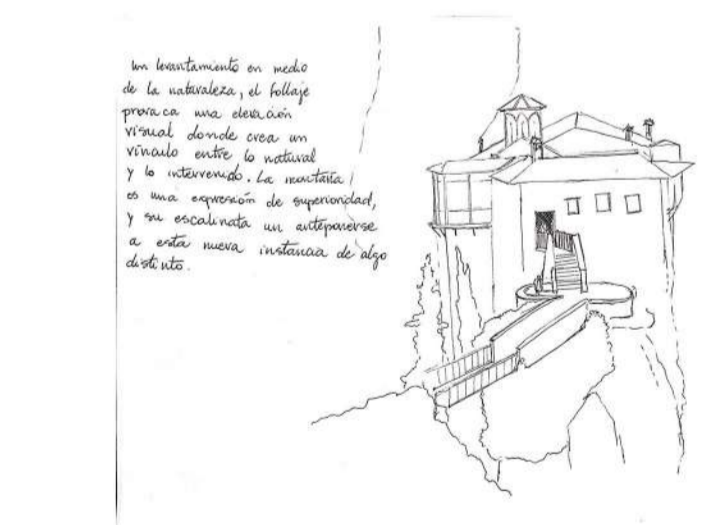 un levantamiento en medio
de la naturaleza, el follaje
provoca una elevación
visual donde crea un
vínculo entre lo natural
y lo intervenido. La montaña
es una expresión de superioridad,
y su escalinata un anteponerse
a esta nueva instancia de algo
distinto.